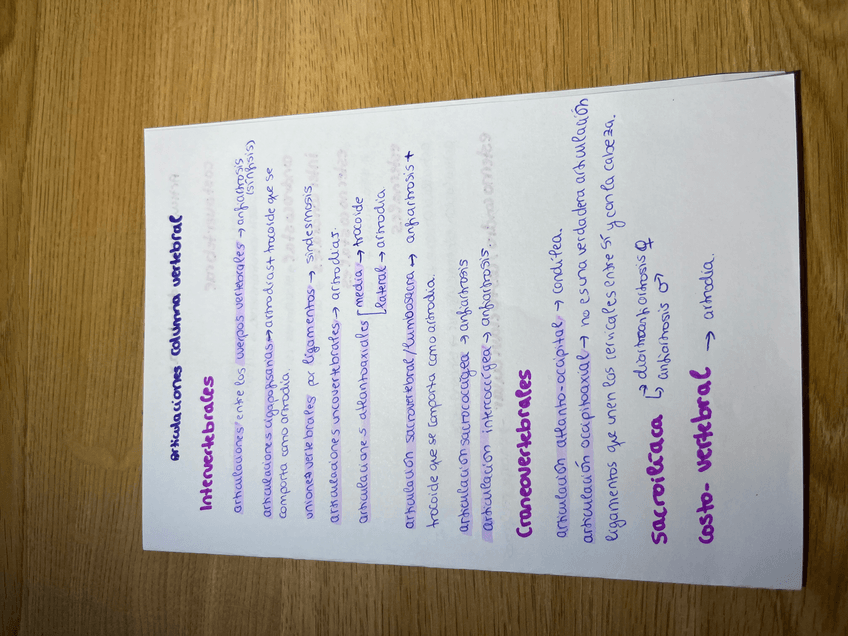 articulaciones columna vertebral
Intervertebrales
articulaciones entre los cuerpos vertebrales → anfiartrosis
(sínfisis)
articulaciones cigapofisarias → artrodias + trocoide que se
comporta como artrodia.
uniones vertebrales por ligamentos → sindesmosis
articulaciones uncovertebrales → artrodias.
articulaciones atlantoaxiales [media → trocoide
lateral → artrodia
articulación sacrovertebral/lumbosacra → anfiartrosis +
trocoide que se comporta como artrodia.
articulación sacrococcígea → anfiartrosis
articulación intercoccígea → anfiartrosis
Craneovertebrales
articulación atlanto-occipital → condílea.
articulación occipitoaxial → no es una verdadera articulación
ligamentos que unen las cervicales entre sí y con la cabeza.
sacroilíaca ↳ diartroanfiartrosis ♀
anfiartrosis ♂
costo-vertebral → artrodia.